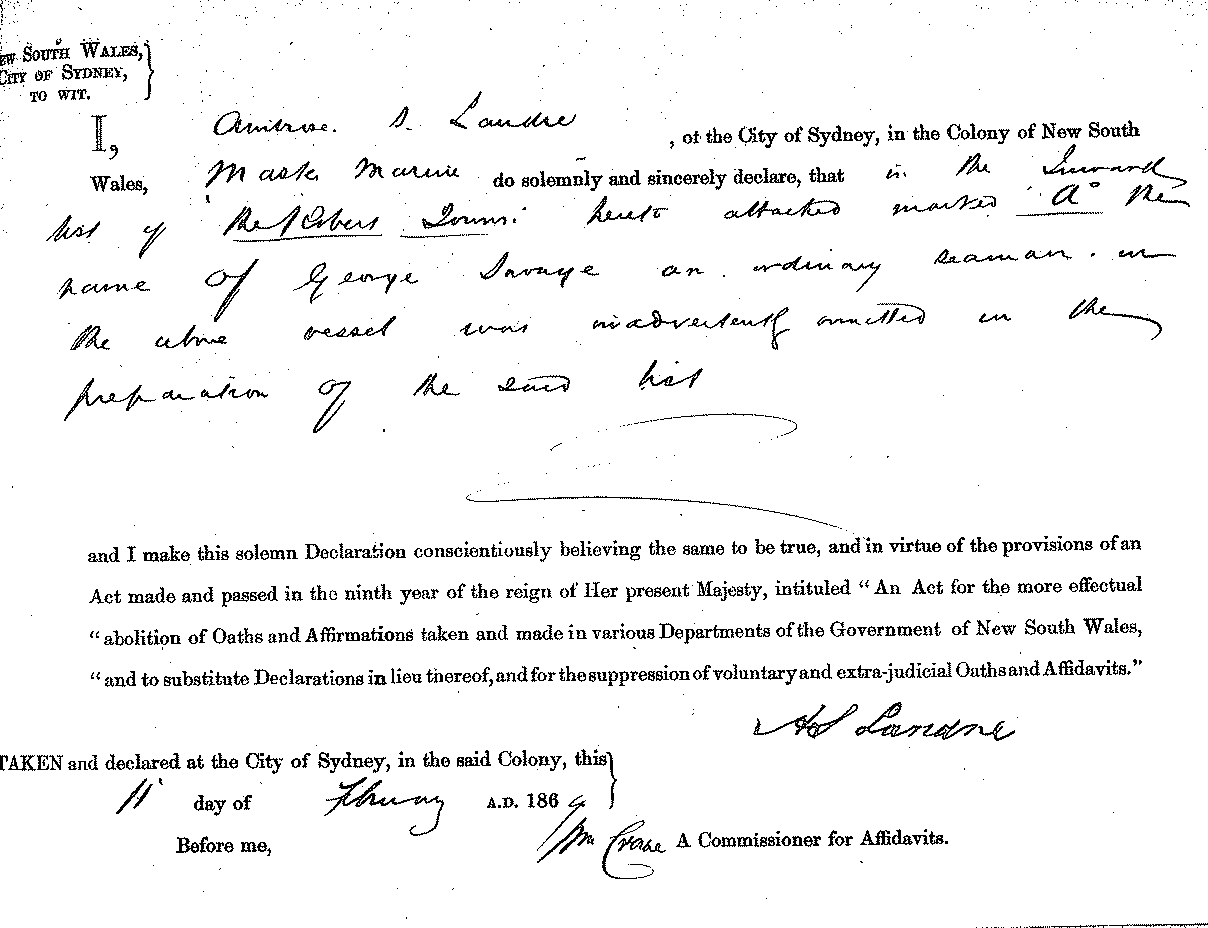 EW SOUTH WALES,
CITY OF SYDNEY,
TO WIT.
I, Ambrose. S. Landre, of the City of Sydney, in the Colony of New South
Wales, Master Marine do solemnly and sincerely declare, that in the Inward
list of "the Robert Towns" hereto attached marked "A" the
name of George Savage an ordinary seaman. in
the above vessel was inadvertently omitted in the
preparation of the said list
and I make this solemn Declaration conscientiously believing the same to be true, and in virtue of the provisions of an
Act made and passed in the ninth year of the reign of Her present Majesty, intituled "An Act for the more effectual
"abolition of Oaths and Affirmations taken and made in various Departments of the Government of New South Wales,
"and to substitute Declarations in lieu thereof, and for the suppression of voluntary and extra-judicial Oaths and Affidavits."
AS Landre
TAKEN and declared at the City of Sydney, in the said Colony, this
11 day of February A.D. 1869
Before me, Wm Crane A Commissioner for Affidavits.